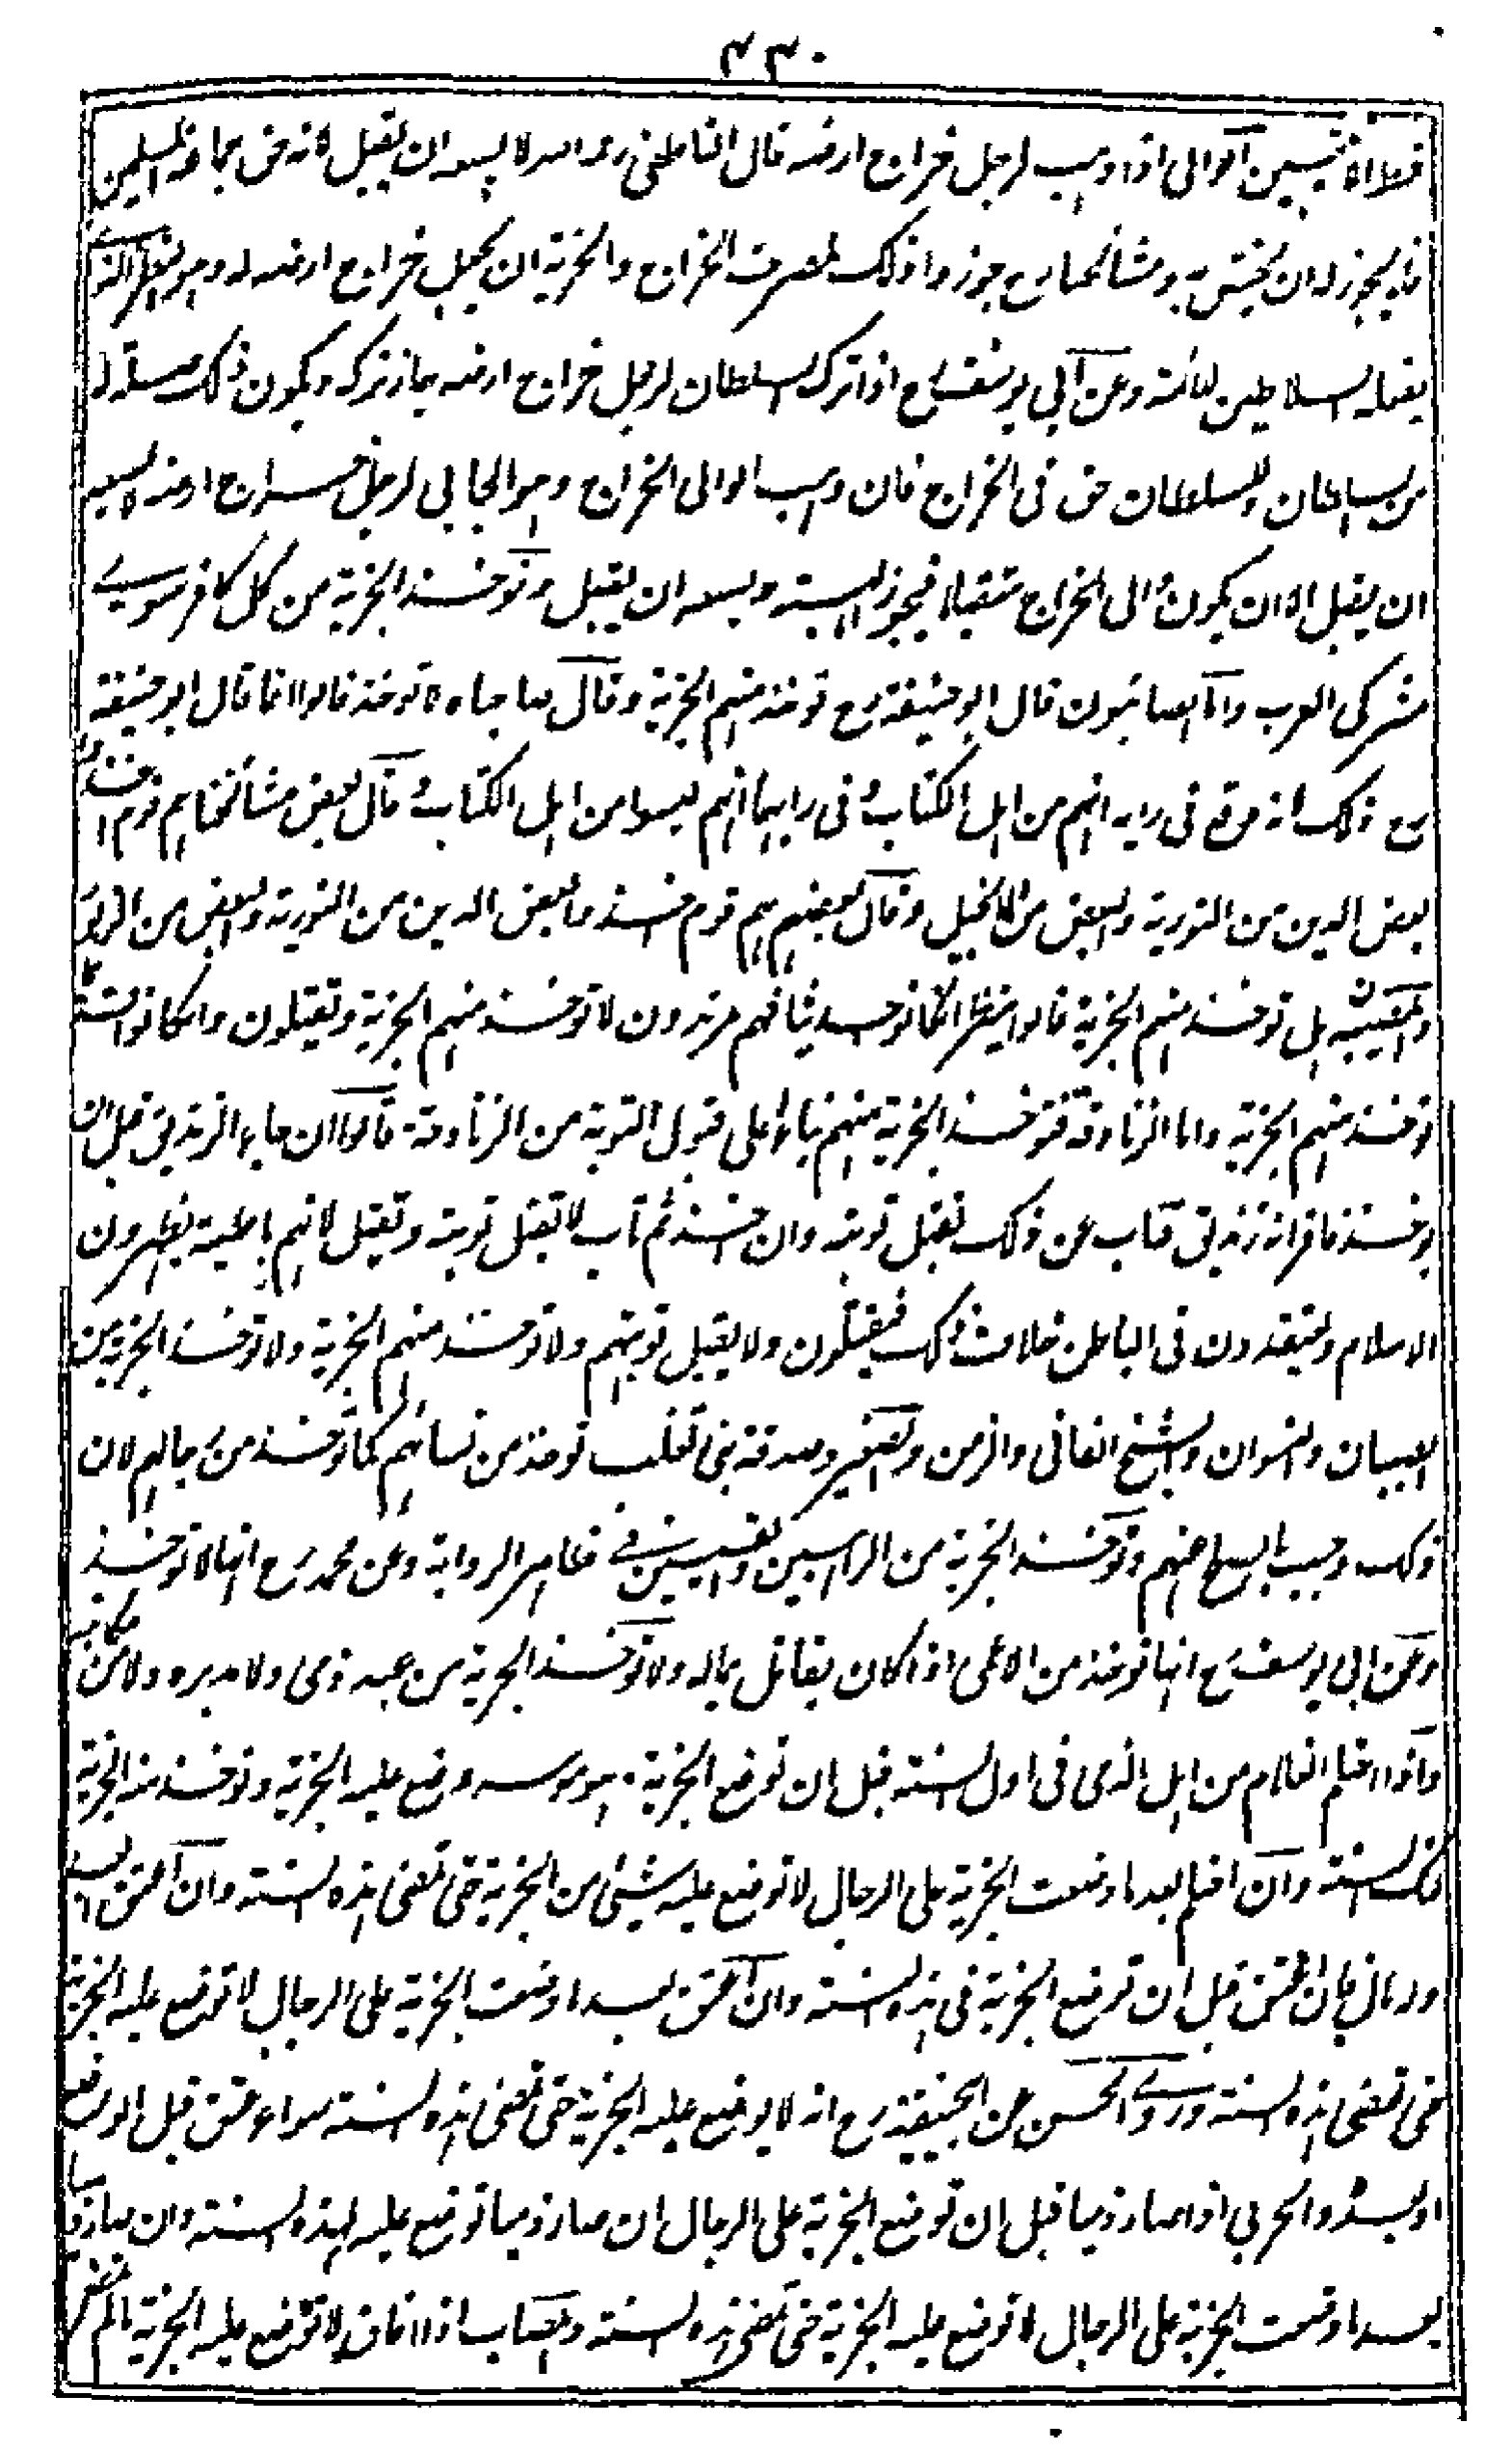 ۴۳۰
الوالى اذا وهب لرجل خراج ارضه قال الناطفى رحمه الله لا يسعه ان يقبل لانه حق جماعة المسلمين
يجوز له ان يختص به ومشائخنا رح جوزوا ذلك لمصرف الخراج والجزية ان يجعل خراج ارضه له وهو نظير الذى
يفعله السلاطين للائمة وعن ابى يوسف رح اذا ترك السلطان لرجل خراج ارضه جاز تركه ويكون ذلك صلة له
من السلطان وللسلطان حق فى الخراج فان وهب الوالى الخراج وهو الجابى لرجل خراج ارضه لا يسعه
ان يقبل الا ان يكون والى الخراج متقبلا فيجوز الهبة ويسعه ان يقبل وتوخذ الجزية من كل كافر سوى
مشركى العرب واما الصابئون قال ابو حنيفة رح توخذ منهم الجزية وقال صاحباه لا توخذ قالوا انما قال ابو حنيفة
رح ذلك لانه وقع فى رايه انهم من اهل الكتاب وفى رايهما انهم ليسوا من اهل الكتاب قال بعض مشائخنا هم قوم اخذوا
بعض الدين من التورية والبعض من الانجيل وقال بعضهم هم قوم اخذوا بعض الدين من التورية والبعض من الزبور
والمبيضة هل توخذ منهم الجزية قالوا ينظر ان كانوا حديثا فهم مرتدون لا توخذ منهم الجزية ويقتلون وان كانوا
توخذ منهم الجزية واما الزنادقة فتوخذ الجزية منهم بناء على قبول التوبة من الزنادقة قالوا ان جاء الزنديق قبل ان
يوخذ فاقر انه زنديق فتاب عن ذلك تقبل توبته وان اخذ ثم تاب لا تقبل توبته ويقتل لانهم باطنية يظهرون
الاسلام ويعتقدون فى الباطن خلاف ذلك فيقتلون ولا يقبل توبتهم ولا توخذ منهم الجزية ولا توخذ الجزية من
الصبيان والنسوان والشيخ الفانى والزمن والفقير وصدقة بنى تغلب توخذ من نسائهم كما توخذ من رجالهم لان
ذلك وجب بالصلح منهم وتوخذ الجزية من الراهبين والقسيسين فى ظاهر الرواية وعن محمد رح انها لا توخذ
وعن ابى يوسف رح انها توخذ من الاعمى اذا كان يقاتل بماله ولا توخذ الجزية من عبد ذمى ولا مدبره ولا من مكاتبه
واذا احتلم الغلام من اهل الذمى فى اول السنة قبل ان توضع الجزية وهو موسر وضع عليه الجزية وتوخذ منه الجزية
تلك السنة وان احتلم بعد ما وضعت الجزية على الرجال لا توضع عليه شيئ من الجزية حتى تمضى هذه السنة وان اعتق العبد
وله مال فان اعتق قبل ان توضع الجزية فى هذه السنة وان اعتق بعد ما وضعت الجزية على الرجال لا توضع عليه الجزية
حتى تمضى هذه السنة وروى الحسن عن ابيحنيفة رح انه لا يوضع عليه الجزية حتى تمضى هذه السنة سواء عتق قبل الوضع
او بعده والحربى اذا صار ذميا قبل ان توضع الجزية على الرجال ان صار ذميا توضع عليه لهذه السنة وان صار ذميا
بعد ما وضعت الجزية على الرجال لا توضع عليه الجزية حتى تمضى هذه السنة والمصاب اذا افاق لا توضع عليه الجزية ما لم تمض